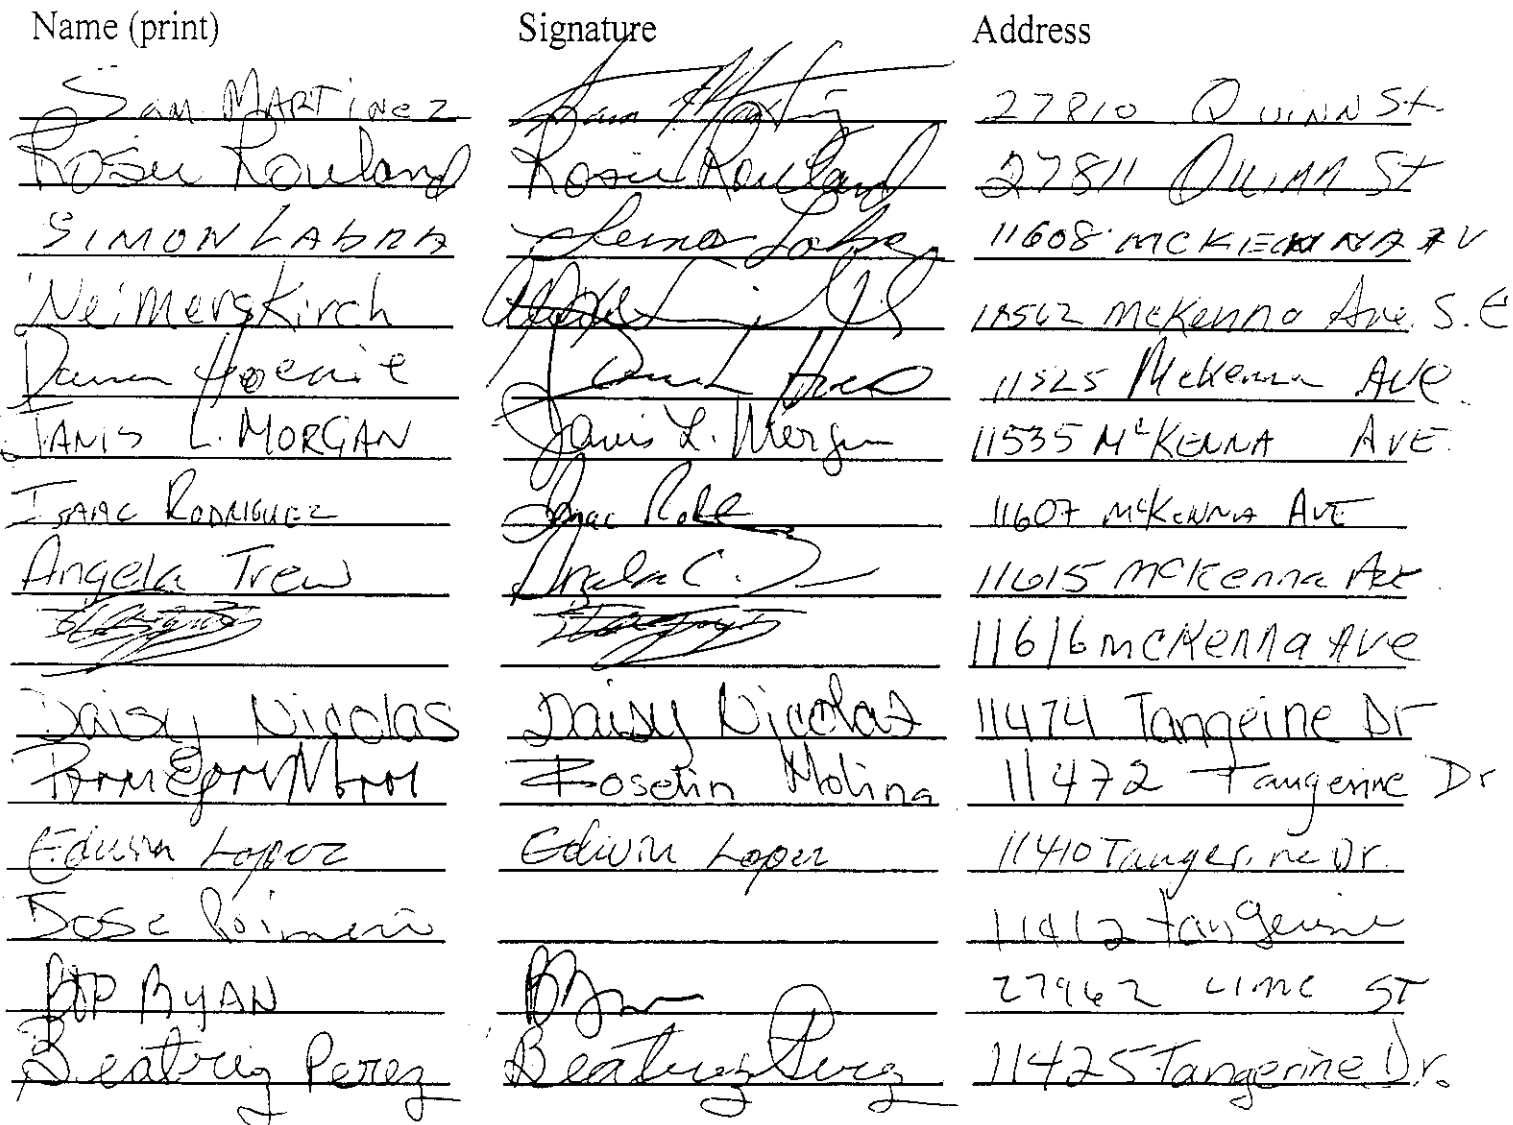 Name (print) Signature Address
Sam MARTINEZ Sam Martinez 27810 QUINN St
Rosie Rowland Rosie Rowland 27811 QUINN St
SIMON LABRA 11608 MCKENNA AV
Neimerskirch McKenna Ave. S.E
11525 McKenna AVE.
JANIS L. MORGAN Janis L. Morgan 11535 McKENNA AVE.
ISAAC RODRIGUEZ Isaac 11607 McKENNA AVE
Angela Trew Angela C. 11615 McKenna Ave.
11616 McKenna Ave
Daisy Nicolas Daisy Nicolas 11474 Tangeine Dr
Roselin Molina 11472 Tangerine Dr
Edwin Lopez Edwin Lopez 11410 Tangerine Dr.
Jose 11412 tangerine
RYAN 27962 LIME ST
Beatriz Perez Beatriz Perez 11425 Tangerine Dr.